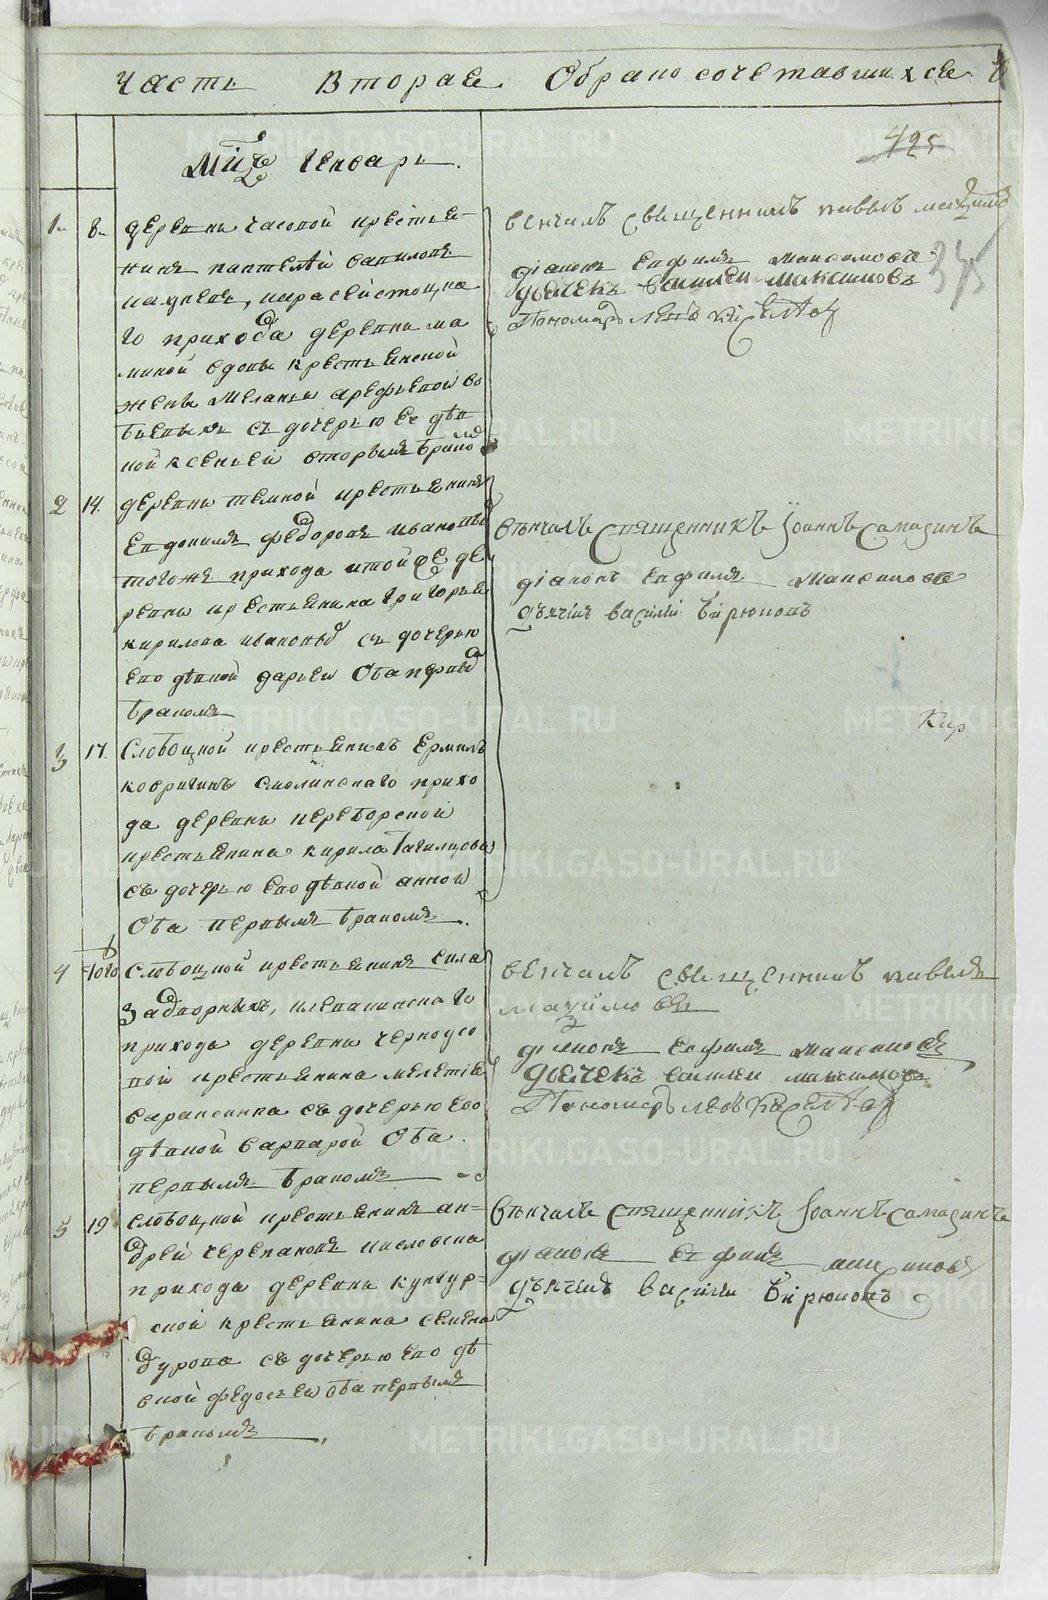 Часть Вторая О бракосочетавшихся
425
Мцъ Генварь.
1. 8. деревни часовой крестья-
нинъ пантелей вавиловъ
того прихода деревни ма
миной вдовы крестьянской
жены Меланьи арефьевой
съ дочерью ее дѣв
кой ксеньей вторымъ бракомъ
венчалъ священникъ павелъ
діаконъ ефимъ Максимовъ
дьячекъ василей Максимовъ
Пономарь левъ
345
2 14. деревни темной крестьянинъ
евдокимъ федоровъ ивановыхъ
тогоже прихода и тойже де
ревни крестьянина Григорья
кирилова ивановыхъ съ дочерью
ево дѣвкой дарьей Оба первымъ
бракомъ
вѣнчалъ Священникъ Іоаннъ Самаринъ
діаконъ ефимъ Максимовъ
дьячекъ василій бирюковъ
Кир
3 17. Слободской крестьянинъ Ермилъ
ковригинъ Смолинскаго прихо
да деревни переборской
крестьянина кирила
съ дочерью ево дѣвкой анной
Оба первымъ бракомъ.
4 того Слободской крестьянинъ сила
Задворныхъ, клевакинскаго
прихода деревни черноусо
вой крестьянина мелетья
вараксина съ дочерью ево
дѣвкой варварой Оба
первымъ бракомъ
венчалъ священникъ павелъ
діаконъ ефимъ Максимовъ
дьячекъ василеи максимовъ
Пономарь левъ
5 19. слободской крестьянинъ ан-
дрей черепановъ кисловска
прихода деревни
ской крестьянина семена
дурова съ дочерью ево дѣ
вкой федосьей оба первымъ
бракомъ
Вѣнчалъ священникъ Іоаннъ Самаринъ
діаконъ ефимъ максимовъ
дьячекъ василій бирюковъ
METRIKI.GASO-URAL.RU